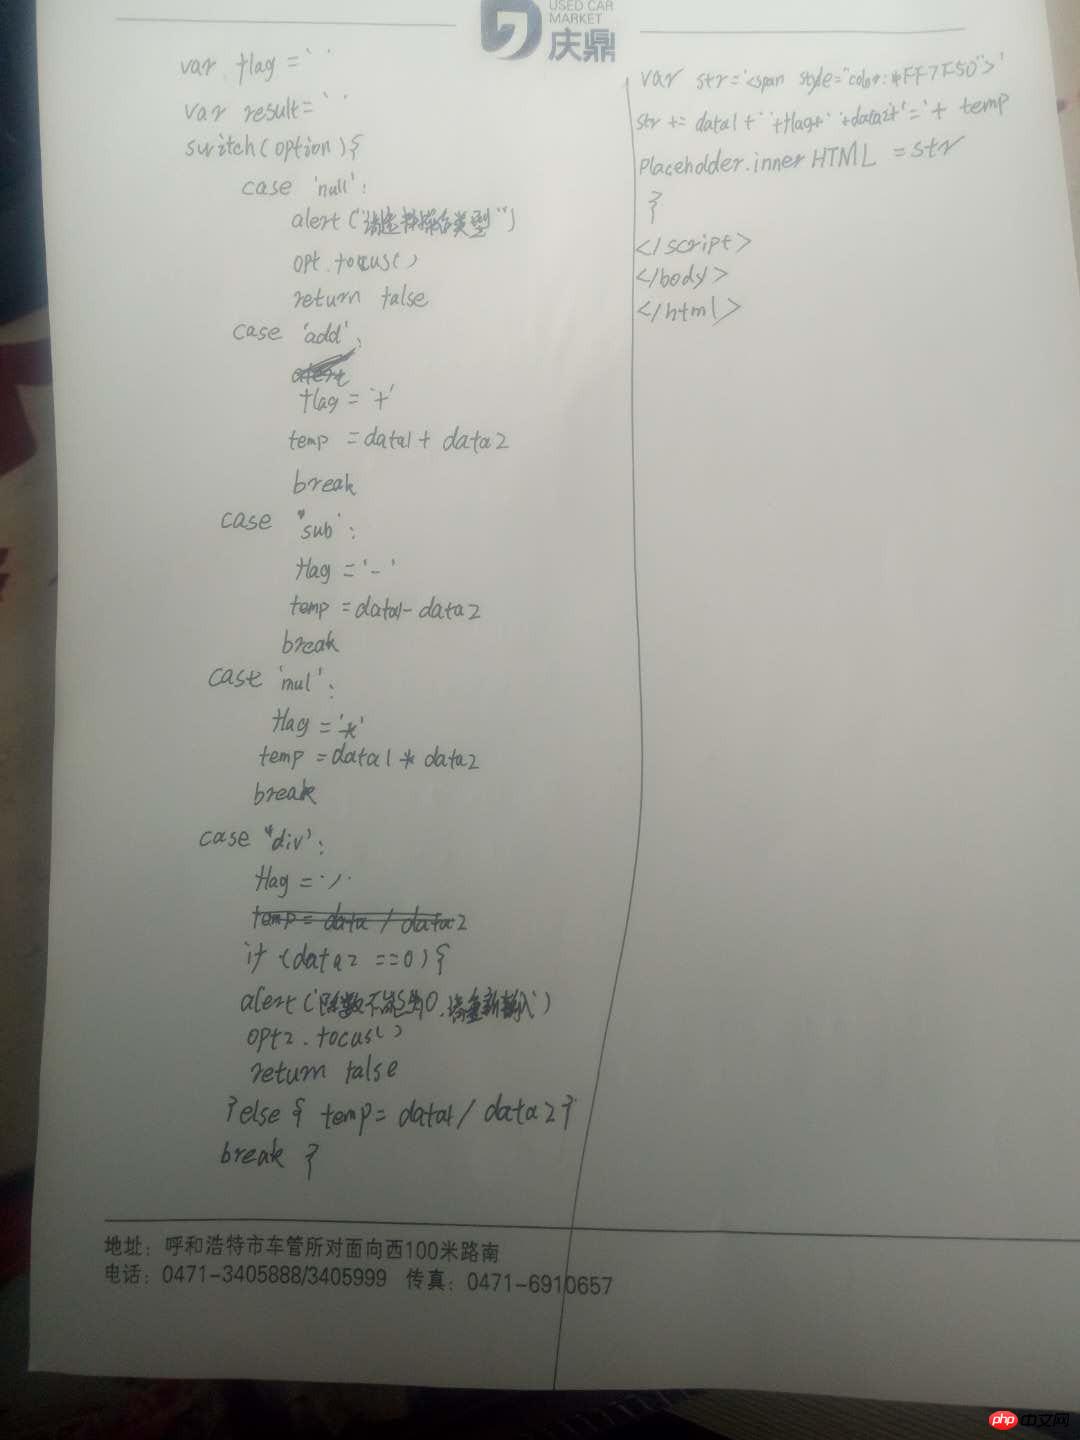 USED CAR
MARKET
庆鼎
var flag = ' '
var result = ' '
switch(option){
case 'null':
alert("请选择操作类型")
opt.focus()
return false
case 'add':
flag = '+'
temp = data1 + data2
break
case "sub':
flag = '-'
temp = data1 - data2
break
case 'mul':
flag = '*'
temp = data1 * data2
break
case "div':
flag = '/'
temp = data / data2
if (data2 ==0){
alert('除数不能为0,请重新输入')
opt2.focus()
return false
}else{ temp = data1 / data2}
break }
var str='<span style="color:#FF7F50">'
str += data1 + ' '+flag+' '+data2+'='+ temp
Placeholder.innerHTML = str
}
</script>
</body>
</html>
地址：呼和浩特市车管所对面向西100米路南
电话：0471-3405888/3405999 传真：0471-6910657
php中文网